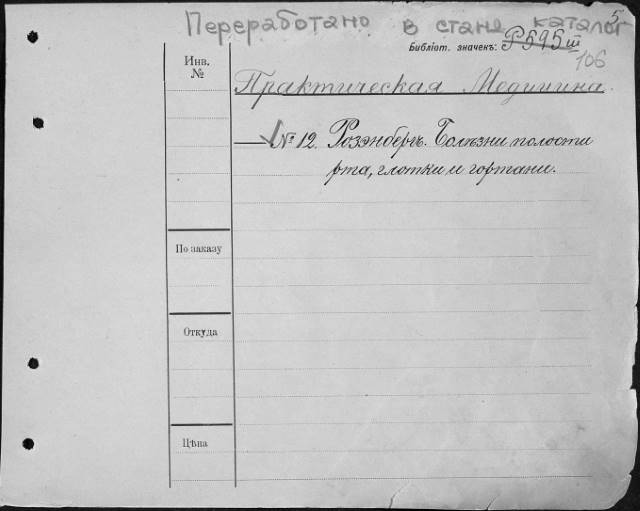 Переработано в стане каталог
5
Библіот. значекъ: Р 595 III
106
Инв. №
Практическая Медицина.
№ 12. Розэнбергъ. Болѣзни полости
рта, глотки и гортани.
По заказу
Откуда
Цѣна